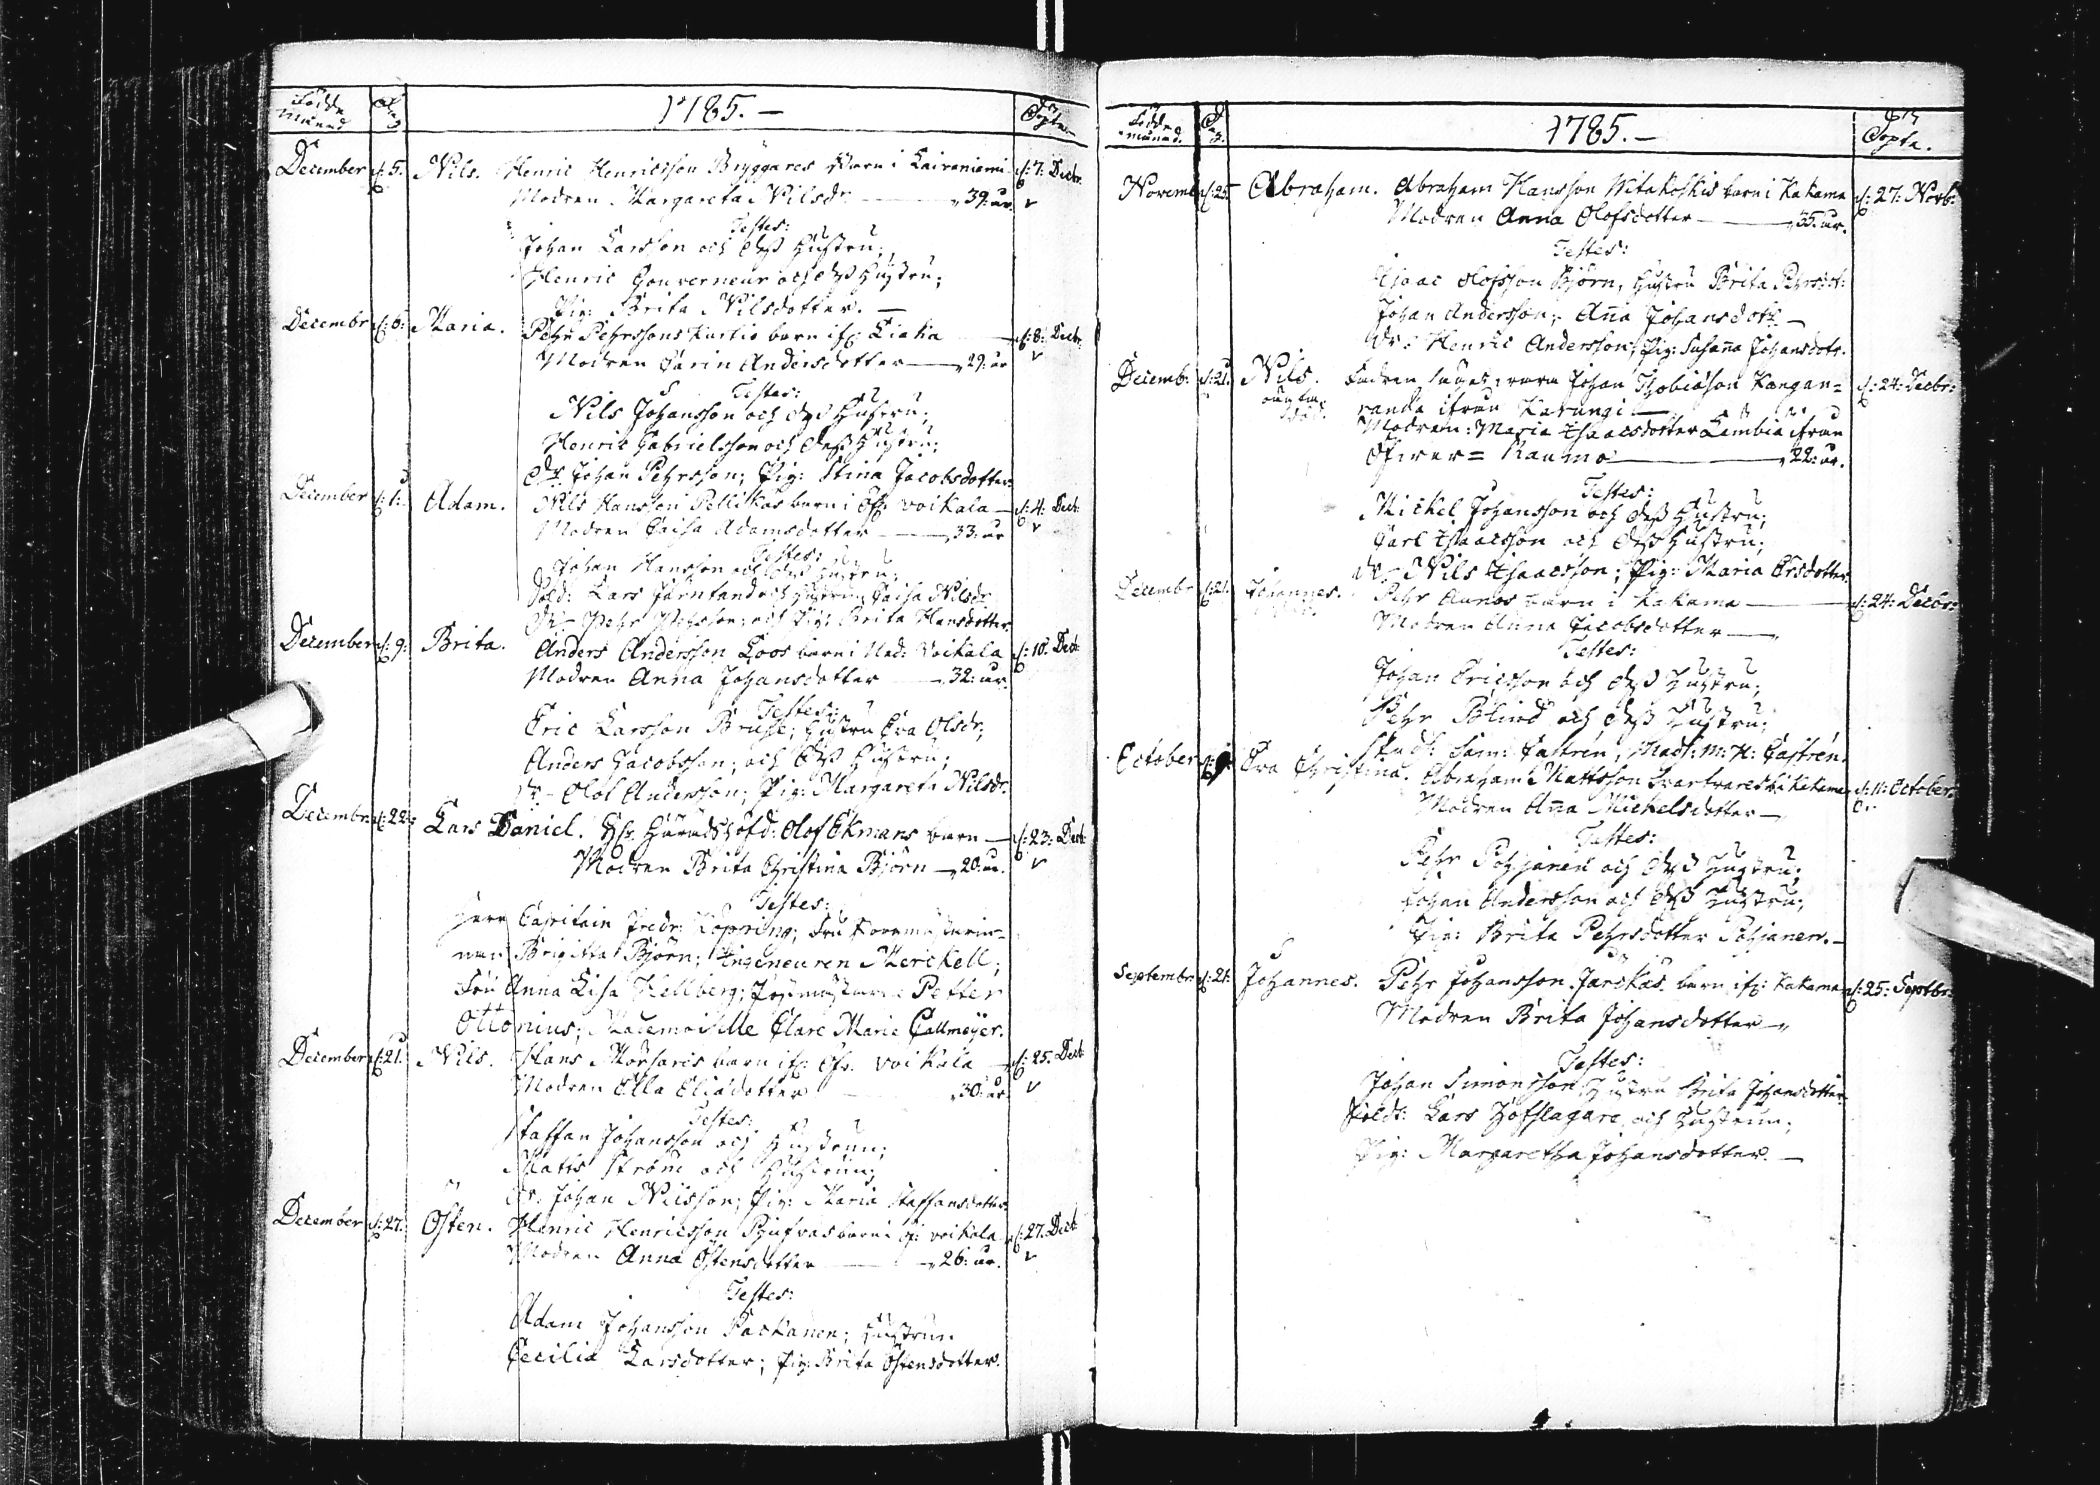 Födde månad
Dag
1785.-
Döpte
December d: 5. Nils. Henric Henricsson Bryggares Barn i Kairaniemi d: 7: Decbr.
Modren Margareta Nilsdr — 39. år.
Testes:
Johan Larsson och dess Hustru;
Henric Gouverneur och dess Hustru;
Pig: Brita Nilsdotter. —
Decembr d: 6: Maria. Pehr Pehrssons Kurtio barn if: Liaka — d: 8: Decbr
Modren Carin Andersdotter — 29: år
Testes:
Nils Johansson och dess Hustru;
Henric Gabrielsson och dess Hustru;
Dr. Johan Pehrsson; Pig: Stina Jacobsdotter.
December d: 1: Adam. Nils Hansson Pellikas barn i Öfr. Voikala — d: 4: Decb:
Modren Caisa Adamsdotter — 33: år
Testes:
Johan Hansson och dess Hustru;
Sold: Lars Järnland och Hustrun Caisa Nilsdr
Dr. Pehr Pehrsson; och Pig: Brita Hansdotter.
December d: 9: Brita. Anders Andersson Koos barn i Ned: Voikala d: 10: Decb:
Modren Anna Johansdotter — 32: år.
Testes:
Eric Larsson Bruse; Hustru Eva Olsdr;
Anders Jacobsson; och dess Hustru;
Dr. Olof Andersson; Pig: Margareta Nilsdr.
Decembr d: 22: Lars Daniel. Hr. Häradshöfd: Olof Ekmans barn — d: 23: Decb:
Modren Brita Christina Björn — 20. år.
Testes:
Herr Capitain Fredr: Kopring; Fru
Brigitta Björn; Ingeneuren Merckell;
Fru Anna Lisa Hellberg; Postmästaren Petter
Ottonius; Mademoiselle Clare Marie Callmeyer.
December d: 21. Nils. Hans Morsaris barn if: Öfr. Voikala — d: 25. Decb:
Modren Ella Eliædotter — 30: år.
Testes:
Staffan Johansson och Hustrun;
Matts Ström och Hustrun;
Dr. Johan Nilsson; Pig: Maria Staffansdotter.
December d: 27: Östen. Henric Henricsson barn i Öf: Voikala d: 27. Decb:
Modren Anna Östensdotter — 26: år.
Testes:
Adam Johansson Packanen; Hustrun
Cecilia Larsdotter; Pig: Brita Östensdotter.
Födde månad.
Dag
1785.-
Döpte.
Novemb d: 25. Abraham. Abraham Hansson Witakoskis barn i Kakama d: 27: Novb:
Modren Anna Olofsdotter — 35. år.
Testes:
Isaac Olofsson Björn, Hustru Brita Pehrsdot:
Johan Andersson; Aña Johansdott. —
Dr. Henric Andersson; Pig: Susaña Johansdotr.
Decemb: d: 21. Nils. Fadren säges vara Johan Thobiasson Kangan=
oäkta
randa ifrån Karungi —
Modren: Maria Isaacsdotter Lambia ifrån
Öfwer= Raumo — 22: år.
Testes:
Michel Johansson och dess Hustru;
Carl Isaacsson och dess Hustru;
Dr. Nils Isaacsson; Pig: Maria Ersdotter. d: 24: Decbr:
December d: 21. Johannes. Pehr Aunos barn i Kakama — d: 24: Decbr:
Modren Anna Jacobsdotter —
Testes:
Johan Ericsson och dess Hustru;
Pehr Blind och dess Hustru;
Stud: Sam: Castrén, Mads: M: H: Castrén.
October d: 9 Eva Christina. Abraham Mattsson i Kakama d: 11: October.
Modren Aña Michelsdotter —
Testes:
Pehr Pohjanen och dess Hustru;
Johan Andersson och dess Hustru;
Pig: Brita Pehrsdotter Pohjanen. —
Septembr d: 21: Johannes. Pehr Johansson Jarskas barn if: Kakama d: 25: Septbr:
Modren Brita Johansdotter —
Testes:
Johan Simonsson, Hustru Brita Johansdotter
Sold: Lars Hofslagare, och Hustrun;
Pig: Margaretha Johansdotter. —